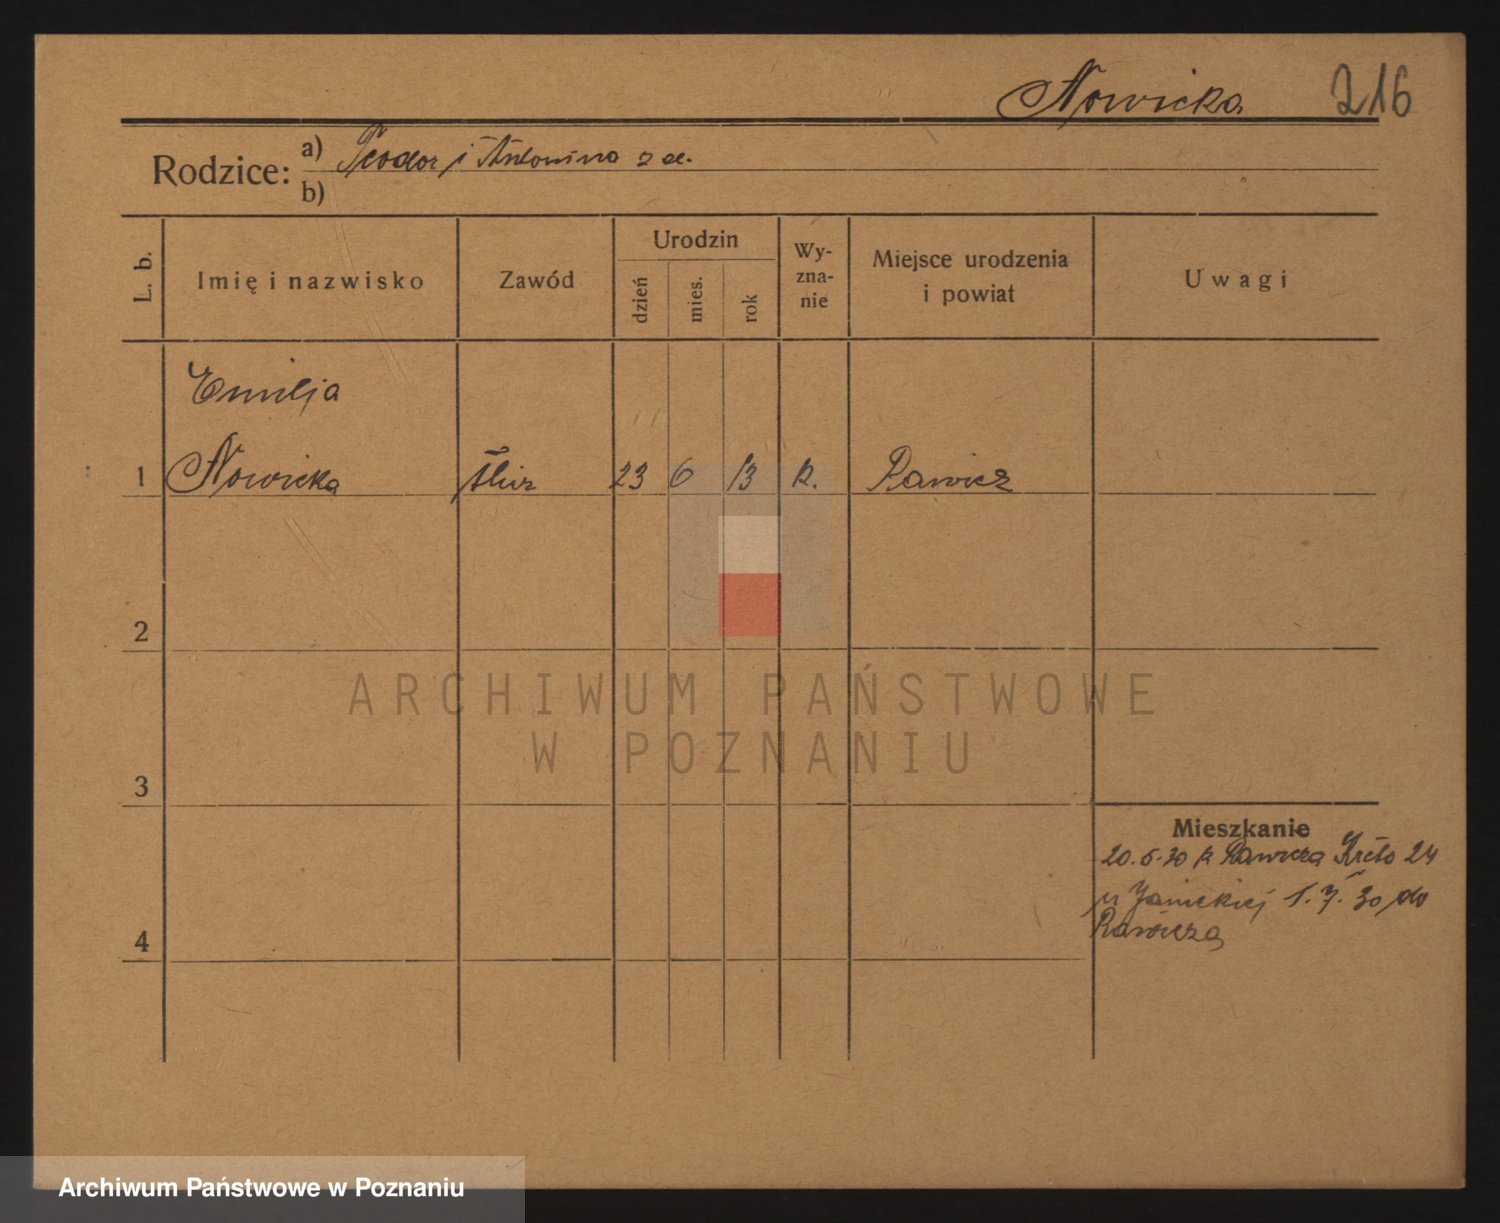 Nowicka 216
Rodzice: a) Teodor i Antonina z d.
b)
L. b.
Imię i nazwisko
Zawód
Urodzin
dzień
mies.
rok
Wy-
zna-
nie
Miejsce urodzenia
i powiat
Uwagi
Emilja
1 Nowicka służ 23 6 13 k. Rawicz
2
ARCHIWUM PAŃSTWOWE
W POZNANIU
3
Mieszkanie
20.5.30 z Rawicza 24
u Janickiej 1.7.30 do
Rawicza
4
Archiwum Państwowe w Poznaniu